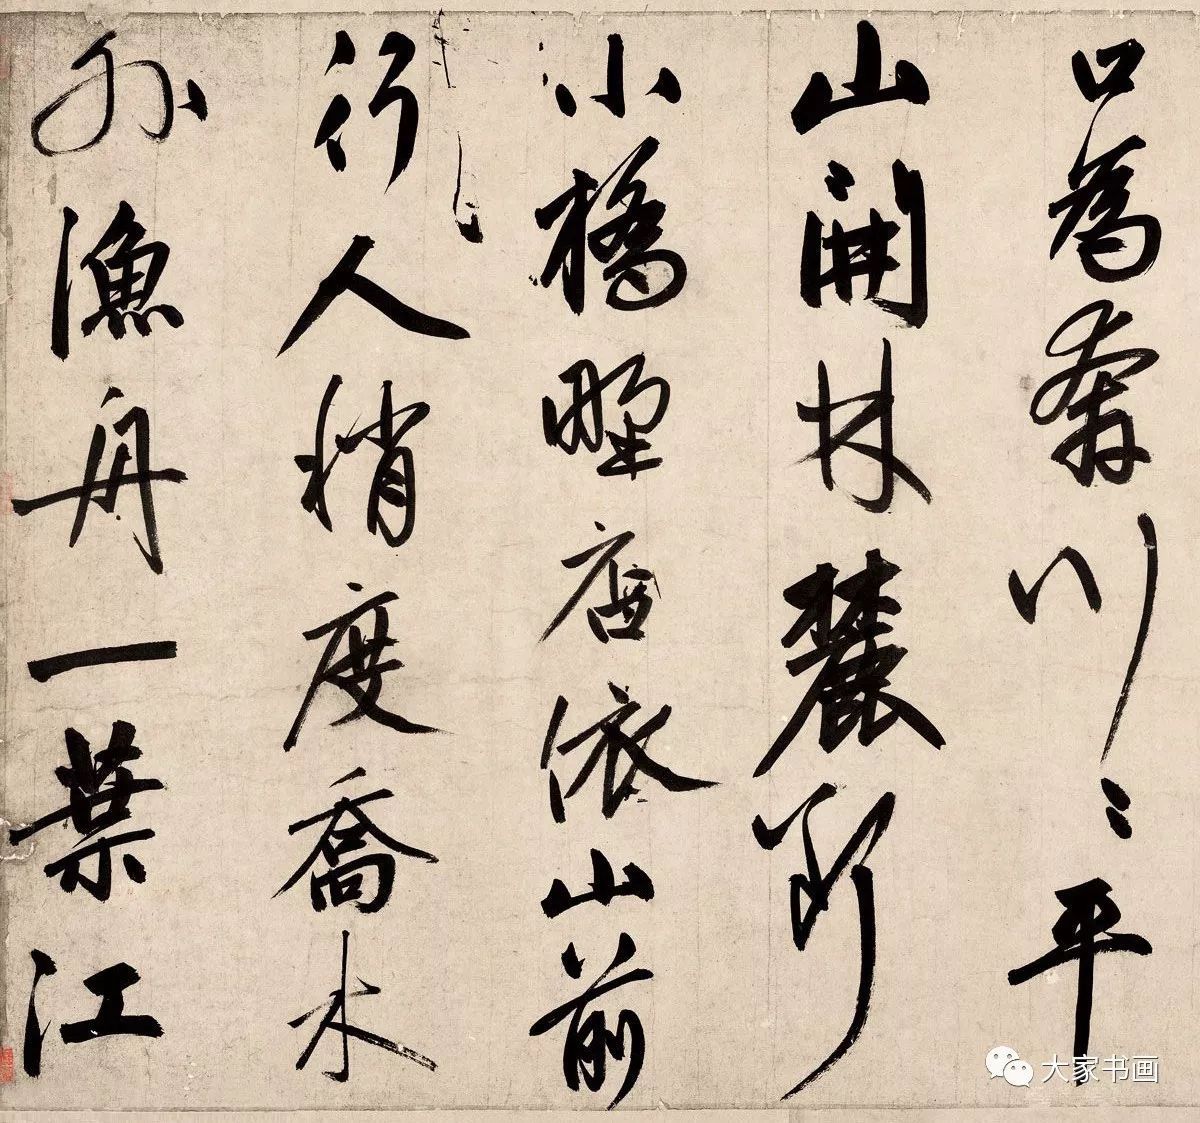 口為奔川〻平
山開林麓斷
小橋野店依山前
行人稍度喬木
外漁舟一葉江
大家书画